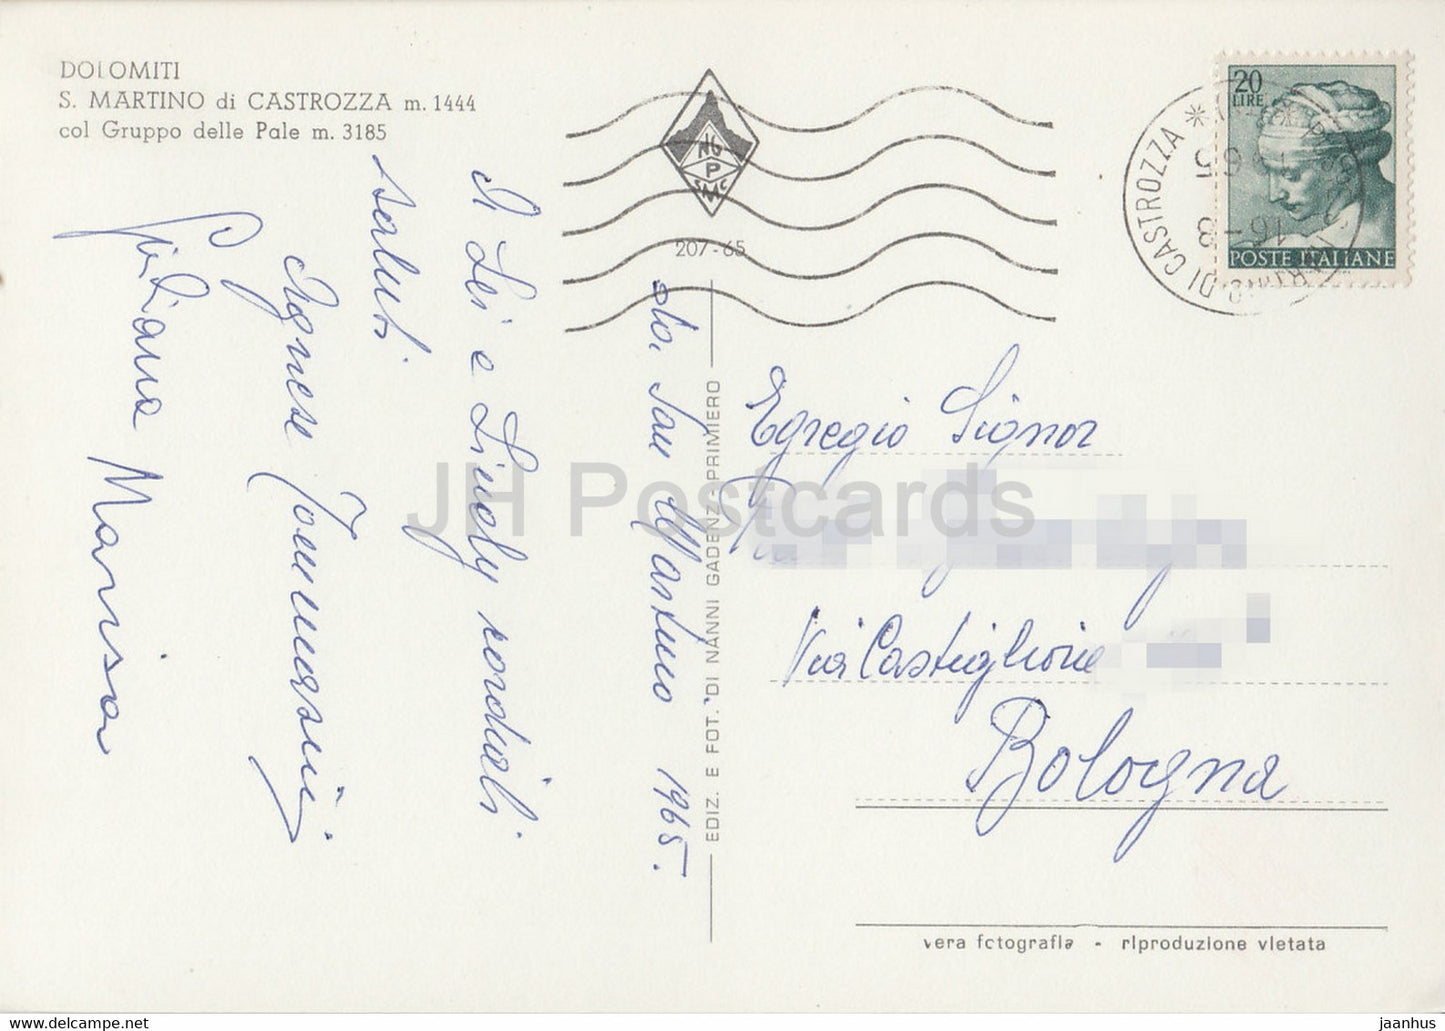 DOLOMITI
S. MARTINO di CASTROZZA m. 1444
col Gruppo delle Pale m. 3185
NG
P
SMC
207-65
20
LIRE
POSTE ITALIANE
DI CASTROZZA
16-8
65
sto, San Martino 1965.
A Lei e Lindly cordiali
saluti
Agnese Tommasini
Giuliana
Marisa
EDIZ. E FOT. DI NANNI GADENZ - PRIMIERO
Egregio Signor
Via Castiglione
Bologna
vera fotografia - riproduzione vietata
JH Postcards
jaanhus
www.delcampe.net